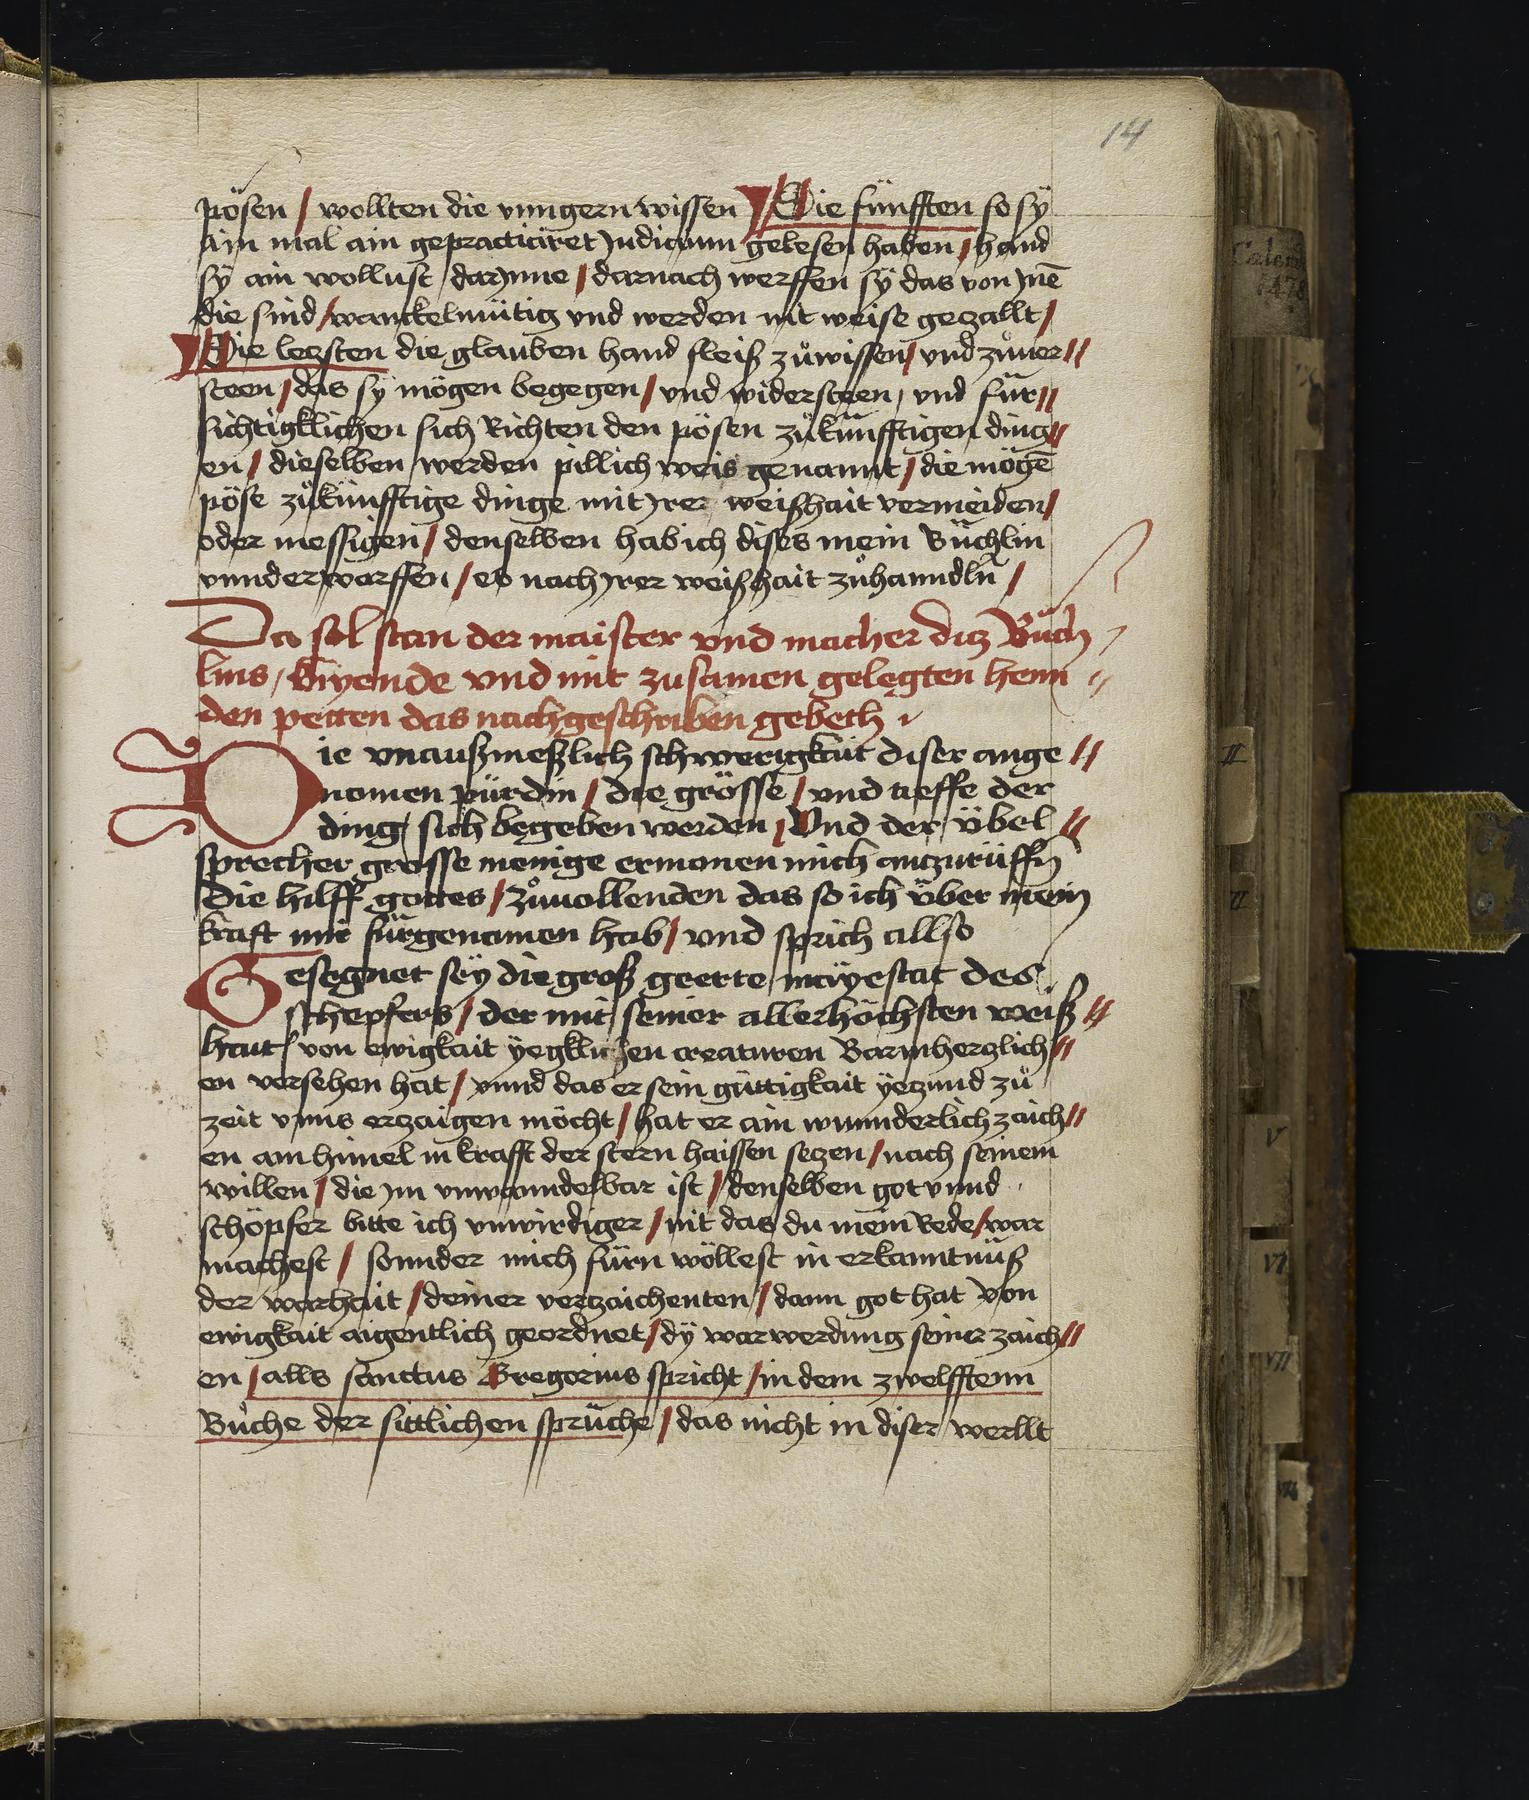 14
pösen / wollten die vnngern wissen Die fünfften so sÿ
ain mal ain gepracticiret Judicium gelesen haben / hand
sÿ ain wollust darJnne / darnach werffen sÿ das von Jnē
die sind / wanckelmütig vnd werden nit weise gezallt /
Die letzsten die glauben hand fleiß zůwissen / vnd zůuer //
steen / das sy mögen begegen / vnd widersteen / vnd für //
sichtigklichen sich Richten den pösen zůkünfftigen ding //
en / dieselben werden pillich weis genannt / die mögē
pöse zůkünfftige dinge mit Jrer weißhait vermeiden /
oder messigen / denselben hab ich dises mein Büchlin
vnnderworffen / es nach Jrer weißhait zůhanndlñ /
Da sol stan der maister vnd macher ditz Bůch
lins / kniyende vnd mit zusamen gelegten henn //
den petten das nachgeschriben gebeth
Die vnaußmeßlich schwerigkait diser ange //
nomen pürdin / die grösse / vnd tieffe der
ding sich begeben werden / Vnd der übel //
sprecher grosse menige ermonen mich antzurüffñ
die hilff gottes / zůuollenden das so ich über mein
kraft mir fürgenomen hab / vnd sprich allso
Gesegnet sey die groß geerte mayestat des
schepfers / der mit seiner allerhöchsten weiß //
hait / von ewigkait yegklichen creaturen Barmhertzlich //
en versehen hat / vnnd das er sein güttigkait yetzund zů
zeit vnns ertzaigen möcht / hat er ain wunnderlich zaich //
en am himel in krafft der stern haissen setzen / nach seinem
willen / die Jm vnwanndelbar ist / denselben got vnnd
schöpfer bitte ich vnwirdiger / nit das du mein Rede / war
machest / sonnder mich fürn wöllest in erkanntnüß
der warhait / deiner vertzaichenten / dann got hat von
ewigkait aigentlich geordnet / dÿ warwerdung seiner zaich //
en / alls sanctus Gregorius spricht / in dem zwelfftenn
Bůche der sittlichen sprüche / das nicht in diser werllt
1478
II
V
VI
VII